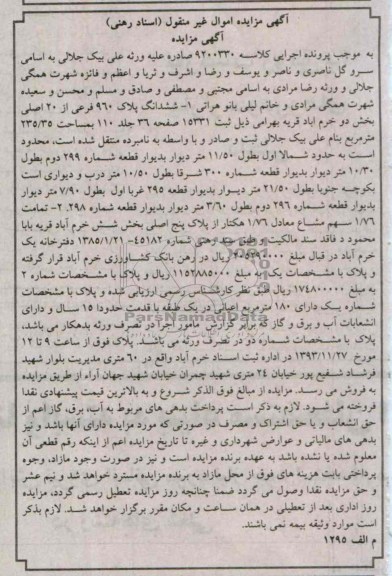 آگهی مزایده اموال غیر منقول (اسناد رهنی)
آگهی مزایده
به موجب پرونده اجرایی کلاسه ۹۲۰۰۳۳۰ صادره علیه ورثه علی بیک جلالی به اسامی
سرو گل ناصری و ناصر و یوسف و رضا و اشرف و ثریا و اعظم و فائزه شهرت همگی
جلالی و ورثه رضا مرادی به اسامی مجتبی و مصطفی و صادق و مسلم و محسن و سعیده
شهرت همگی مرادی و خانم لیلی بانو هراتی ۱- ششدانگ پلاک ۹۶۰ فرعی از ۲۰ اصلی
بخش دو خرم اباد قریه بهرامی ذیل ثبت ۱۵۳۳۱ صفحه ۳۶ جلد ۱۱۰ بمساحت ۲۳۵/۳۵
مترمربع بنام علی بیک جلالی ثبت و صادر و با واسطه به نامبرده منتقل شده است، محدود
است به حدود شمالا اول بطول ۱۱/۵۰ متر دیوار بدیوار قطعه شماره ۲۹۹ دوم بطول
۱۰/۳۰ متر دیوار بدیوار قطعه شماره ۳۰۰ شرقا بطول ۱۰/۵۰ متر درب و دیواری است
بکوچه جنوبا بطول ۲۱/۵۰ متر دیوار بدیوار قطعه ۲۹۵ غربا اول بطول ۷/۹۰ متر دیوار
بدیوار قطعه شماره ۲۹۶ دوم بطول ۳/۶۰ متر دیوار بدیوار قطعه شماره ۲۹۸. ۲- تمامت
۱/۷۶ سهم مشاع معادل ۱/۷۶ هکتار از پلاک پنج اصلی بخش شش خرم آباد قریه بابا
محمود د فاقد سند مالکیت و طبق سند رهنی شماره ۴۵۱۸۲- ۱۳۸۵/۱/۲۱ دفترخانه یک
خرم آباد در قبال مبلغ ریال در رهن بانک کشاورزی خرم آباد قرار گرفته
و پلاک با مشخصات یک به مبلغ ۱۱۵۲۸۸۵۰۰۰ ریال و پلاک با مشخصات شماره ۲
به مبلغ ۱۷۴۸۰۰۰۰۰ ریال طبق نظر کارشناس رسمی ارزیابی شده و پلاک با مشخصات
شماره یک دارای ۱۸۰ مترمربع اعیانی در یک طبقه با قدمت حدودا ۱۵ سال و دارای
انشعابات آب و برق و گاز که برابر گزارش مامور اجرا در تصرف ورثه بدهکار می باشد،
پلاک با مشخصات شماره دو در تصرف ورثه می باشد. پلاک فوق از ساعت ۹ تا ۱۲
مورخ ۱۳۹۳/۱۱/۲۷ در اداره ثبت اسناد خرم آباد واقع در ۶۰ متری مدیریت بلوار شهید
فرشاد شفیع پور خیابان ۲۴ متری شهید چمران خیابان شهید جهان آراء از طریق مزایده
به فروش می رسد. مزایده از مبالغ فوق الذکر شروع و به بالاترین قیمت پیشنهادی نقدا
فروخته می شود. لازم به ذکر است پرداخت بدهی های مربوط به آب، برق، گاز اعم از
حق انشعاب و یا حق اشتراک و مصرف در صورتی که مورد مزایده دارای آنها باشد و نیز
بدهی های مالیاتی و عوارض شهرداری و غیره تا تاریخ مزایده اعم از اینکه رقم قطعی آن
معلوم شده یا نشده باشد به عهده برنده مزایده است و نیز در صورت وجود مازاد، وجوه
پرداختی بابت هزینه های فوق از محل مازاد به برنده مزایده مسترد خواهد شد و نیم عشر
و حق مزایده نقدا وصول می گردد ضمنا چنانچه روز مزایده تعطیل رسمی گردد، مزایده
روز اداری بعد از تعطیلی در همان ساعت و مکان مقرر برگزار خواهد شد. لازم بذکر
است موارد وثیقه بیمه نمی باشند.
م الف ۱۲۹۵
ParsNamadData